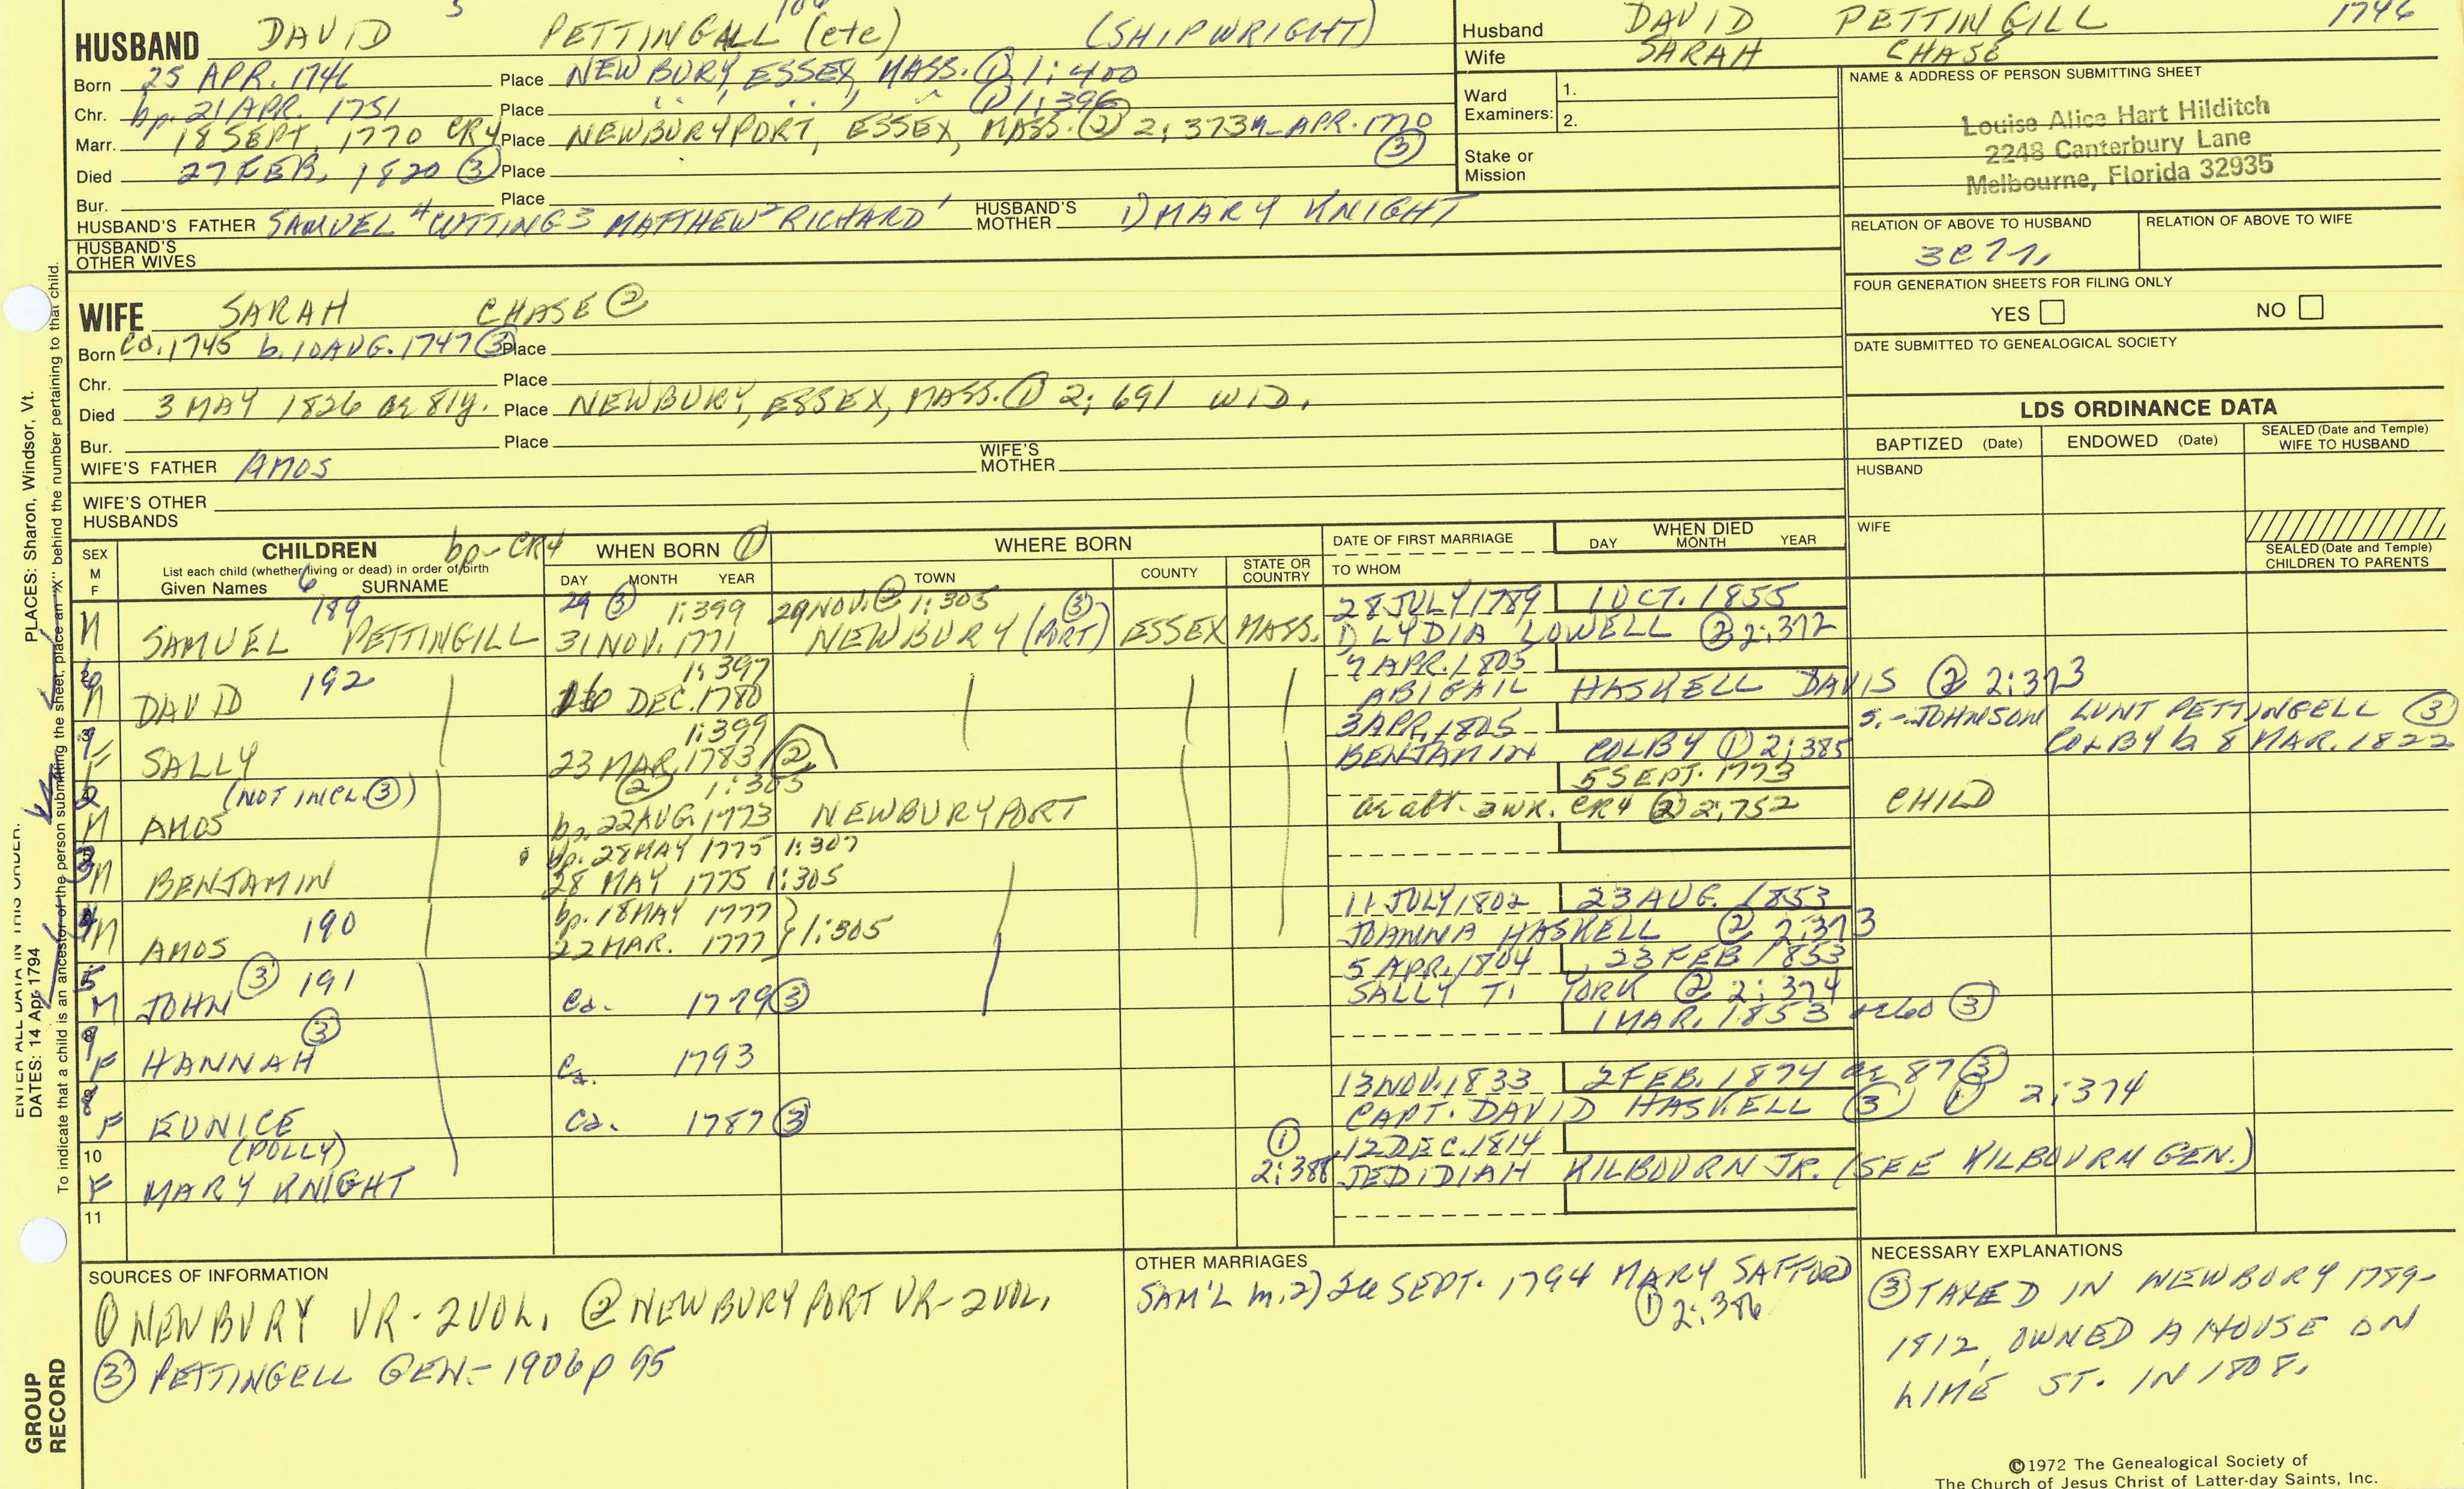 HUSBAND DAVID PETTINGALL (etc) (SHIPWRIGHT)
Born 25 APR. 1746 Place NEWBURY, ESSEX, MASS. ① 1:400
Chr. bp. 21 APR. 1751 Place " , " , " ① 1:396
Marr. 18 SEPT. 1770 CR4 Place NEWBURYPORT, ESSEX, MASS. ② 2:373 APR. 1770 ③
Died 27 FEB. 1820 ③ Place
Bur. Place
HUSBAND'S FATHER SAMUEL 4 CUTTING 3 MATTHEW 2 RICHARD 1 HUSBAND'S MOTHER 1) MARY KNIGHT
HUSBAND'S OTHER WIVES
Husband DAVID PETTINGILL 1746
Wife SARAH CHASE
Ward Examiners: 1.
2.
Stake or Mission
NAME & ADDRESS OF PERSON SUBMITTING SHEET
Louise Alice Hart Hilditch
2248 Canterbury Lane
Melbourne, Florida 32935
RELATION OF ABOVE TO HUSBAND RELATION OF ABOVE TO WIFE
FOUR GENERATION SHEETS FOR FILING ONLY
YES NO
DATE SUBMITTED TO GENEALOGICAL SOCIETY
WIFE SARAH CHASE ②
Born ca. 1745 b. 10 AUG. 1747 ③ Place
Chr. Place
Died 3 MAY 1826 ae 81y. Place NEWBURY, ESSEX, MASS. ① 2:691 WID.
Bur. Place
WIFE'S FATHER AMOS WIFE'S MOTHER
WIFE'S OTHER HUSBANDS
LDS ORDINANCE DATA
BAPTIZED (Date) ENDOWED (Date) SEALED (Date and Temple) WIFE TO HUSBAND
HUSBAND
WIFE
SEALED (Date and Temple) CHILDREN TO PARENTS
SEX M F
CHILDREN bp-CR4
List each child (whether living or dead) in order of birth
Given Names 6 SURNAME
WHEN BORN ①
DAY MONTH YEAR
WHERE BORN
TOWN COUNTY STATE OR COUNTRY
DATE OF FIRST MARRIAGE
TO WHOM
WHEN DIED
DAY MONTH YEAR
189 29 ③ 1:399 29 NOV. ② 1:305 ③ 28 JULY 1789 1 OCT. 1855
M SAMUEL PETTINGILL 31 NOV. 1771 NEWBURY (PORT) ESSEX MASS. 1) LYDIA LOWELL ② 2:372
192 1:397 7 APR. 1805
M DAVID DEC. 1780 ABIGAIL HASKELL DAVIS ② 2:373
1:399 3 APR. 1805 S.-JOHNSON LUNT PETTINGELL ③
F SALLY 23 MAR. 1783 ② BENJAMIN COLBY ① 2:385 COLBY b. 8 MAR. 1822
(NOT INCL. ③) ② 1:305 5 SEPT. 1773
M AMOS bp. 22 AUG. 1773 NEWBURYPORT ae abt. 3 WK. CR4 ② 2:752 CHILD
bp. 28 MAY 1775 1:307
M BENJAMIN 28 MAY 1775 1:305
190 bp. 18 MAY 1777 11 JULY 1802 23 AUG. 1853
M AMOS 22 MAR. 1777 } 1:305 JOANNA HASKELL ② 2:373
5 ③ 191 5 APR. 1804 23 FEB 1853
M JOHN ca. 1779 ③ SALLY T. YORK ② 2:374
③ 1 MAR. 1853 ae 60 ③
F HANNAH ca. 1793
8 13 NOV. 1833 2 FEB. 1874 ae 87 ③
F EUNICE ca. 1787 ③ CAPT. DAVID HASKELL ③ ① 2:374
10 (POLLY) ① 12 DEC. 1814
F MARY KNIGHT 2:388 JEDIDIAH KILBOURN JR. (SEE KILBOURN GEN.)
11
SOURCES OF INFORMATION
① NEWBURY VR-2 VOL. ② NEWBURYPORT VR-2 VOL.
③ PETTINGELL GEN-1906 p 95
OTHER MARRIAGES
SAM'L m. 2) SEPT. 1794 MARY SAFFORD
① 2:386
NECESSARY EXPLANATIONS
③ TAXED IN NEWBURY 1789-
1812, OWNED A HOUSE ON
LIME ST. IN 1808.
©1972 The Genealogical Society of
The Church of Jesus Christ of Latter-day Saints, Inc.
ENTER ALL DATA IN THIS ORDER:
PLACES: Sharon, Windsor, Vt.
DATES: 14 Apr 1794
To indicate that a child is an ancestor of the person submitting the sheet, place an "X" behind the number pertaining to that child.
GROUP RECORD